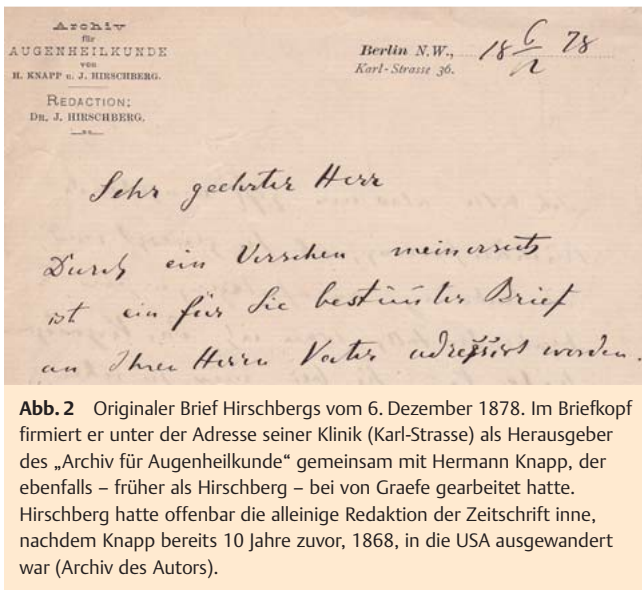 Archiv
für
AUGENHEILKUNDE
von
H. KNAPP u. J. HIRSCHBERG.
REDACTION:
DR. J. HIRSCHBERG.
Berlin N.W., 18 6/12 78
Karl-Strasse 36.
Sehr geehrter Herr
Durch ein Versehen meinerseits
ist ein für Sie bestim̄ter Brief
an Ihren Herrn Vater adressirt worden.
Abb. 2 Originaler Brief Hirschbergs vom 6. Dezember 1878. Im Briefkopf
firmiert er unter der Adresse seiner Klinik (Karl-Strasse) als Herausgeber
des „Archiv für Augenheilkunde“ gemeinsam mit Hermann Knapp, der
ebenfalls – früher als Hirschberg – bei von Graefe gearbeitet hatte.
Hirschberg hatte offenbar die alleinige Redaktion der Zeitschrift inne,
nachdem Knapp bereits 10 Jahre zuvor, 1868, in die USA ausgewandert
war (Archiv des Autors).